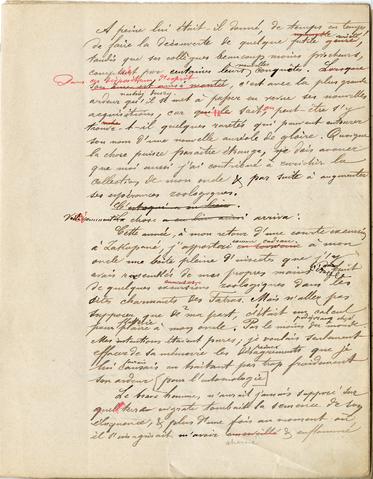 A peine lui était-il donné, de temps en temps
de faire la découverte de quelque petit genre,
tandis que ses collègues beaucoup moins piocheurs,
par centaines leurs conquêtes. Lorsque
Dans
c'est avec la plus grande
ardeur qu'il se met à passer en revue ses nouvelles
acquisitions, car qui sait, peut-être s'y
trouve-t-il quelques raretés qui peuvent entourer
son nom d'une nouvelle auréole de gloire. Quoique
la chose puisse paraître étrange, je dois avouer
que moi aussi j'ai contribué à enrichir la
collection de mon oncle & par suite à augmenter
ses espérances zoologiques.
La chose arriva :
Cette année, à mon retour d'une courte excursion
à Zakopané, j'apportai comme cadeau à mon
oncle une boîte pleine d'insectes que j'y
avais rassemblés de mes propres mains
de quelques excursions zoologiques dans les
charmants des Tatras. Mais n'allez pas
supposer que de ma part, c'était un calcul
pour plaire à mon oncle. Pas le moins du monde.
Mes intentions étaient pures, je voulais seulement
effacer de sa mémoire les désagréments que je
lui causais en traitant par trop froidement
son ardeur pour l'entomologie
Le brave homme, n'aurait jamais supposé sur
quelle terre ingrate tombait la semence de son
éloquence, & plus d'une fois au moment où
il s'imaginait m'avoir & enflammé